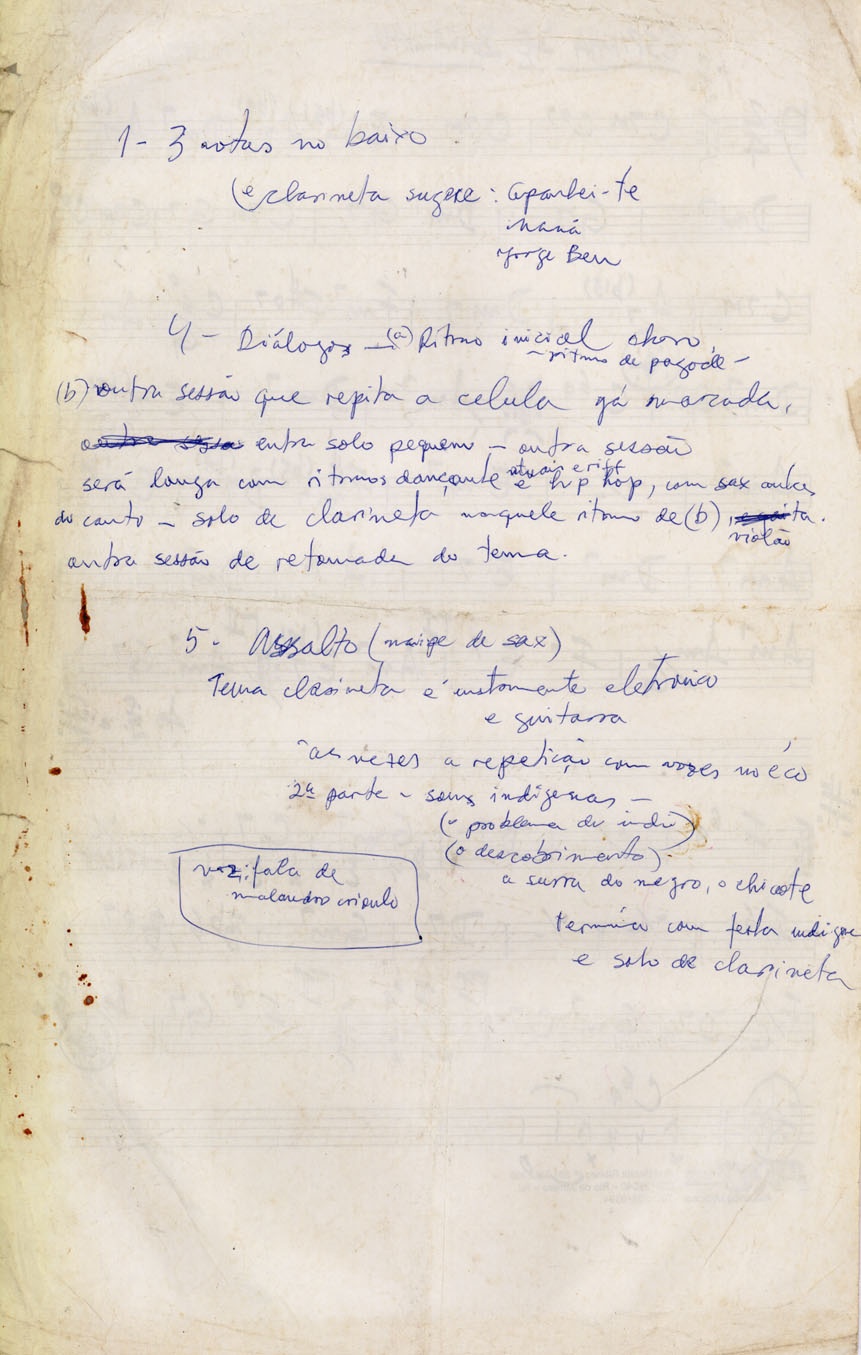 1 - 3 notas no baixo
(e clarineta sugere: Apanhei-te
Naná
Jorge Ben
4 - Diálogos — (a) Ritmo inicial choro,
- ritmo de pagode -
(b) outra sessão que repita a celula já marcada,
entra solo pequeno — outra sessão
será longa com ritmos dançante e hip hop, com sax antes
do canto — solo de clarineta naquele ritmo de (b),
violão
outra sessão de retomada do tema.
5 - Assalto (naipe de sax)
Tema clarineta e instrumento eletronico
e guitarra
às vezes a repetição com vozes no éco
2ª parte - sons indigenas —
(o problema do indio)
(o descobrimento)
a surra do negro, o chicote
voz: fala de
malandro crioulo
termina com festa indigena
e solo de clarineta